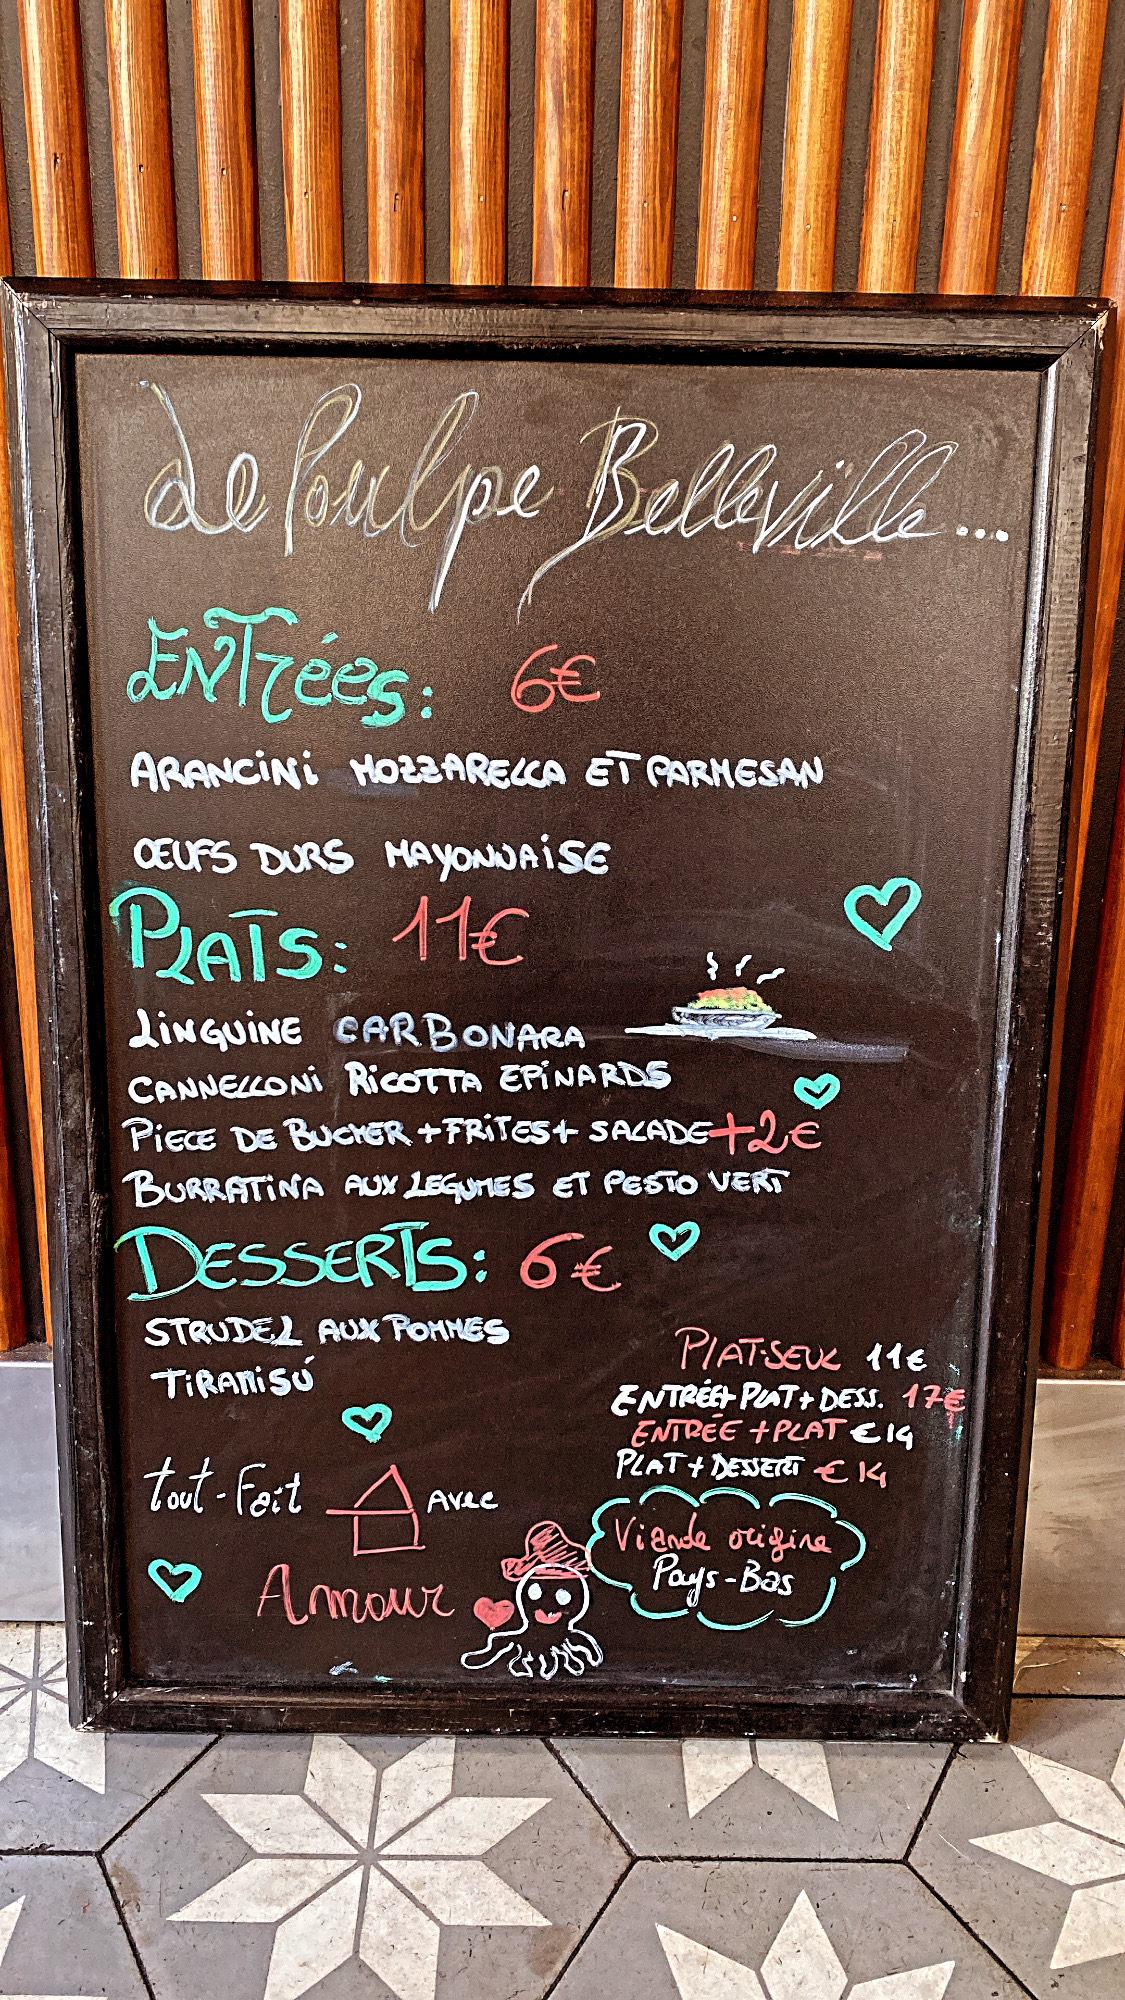 Le Poulpe Belleville...
ENTrées: 6€
ARANCiNi MOZZARELLA ET PARMESAN
ŒUFS DURS MAYONNAiSE
PLATS: 11€
LiNGUiNE CARBONARA
CANNELLONi RiCOTTA EPiNARDS
PiECE DE BUCHER +FRiTES+ SALADE+2€
BURRATiNA AUX LEGUMES ET PESTO VERT
DESSERTS: 6€
STRUDEL AUX POMMES
TiRAMiSÚ
PLAT-SEUL 11€
ENTRÉE+PLAT+DESS. 17€
ENTRÉE +PLAT €14
PLAT+DESSERT €14
tout-Fait AVec
Amour
Viande origine
Pays-Bas